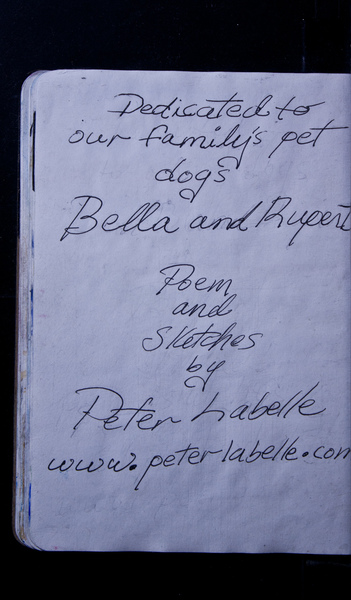 Dedicated to
our family's pet
dogs
Bella and Rupert
Poem
and
Sketches
by
Peter Labelle
www.peterlabelle.com